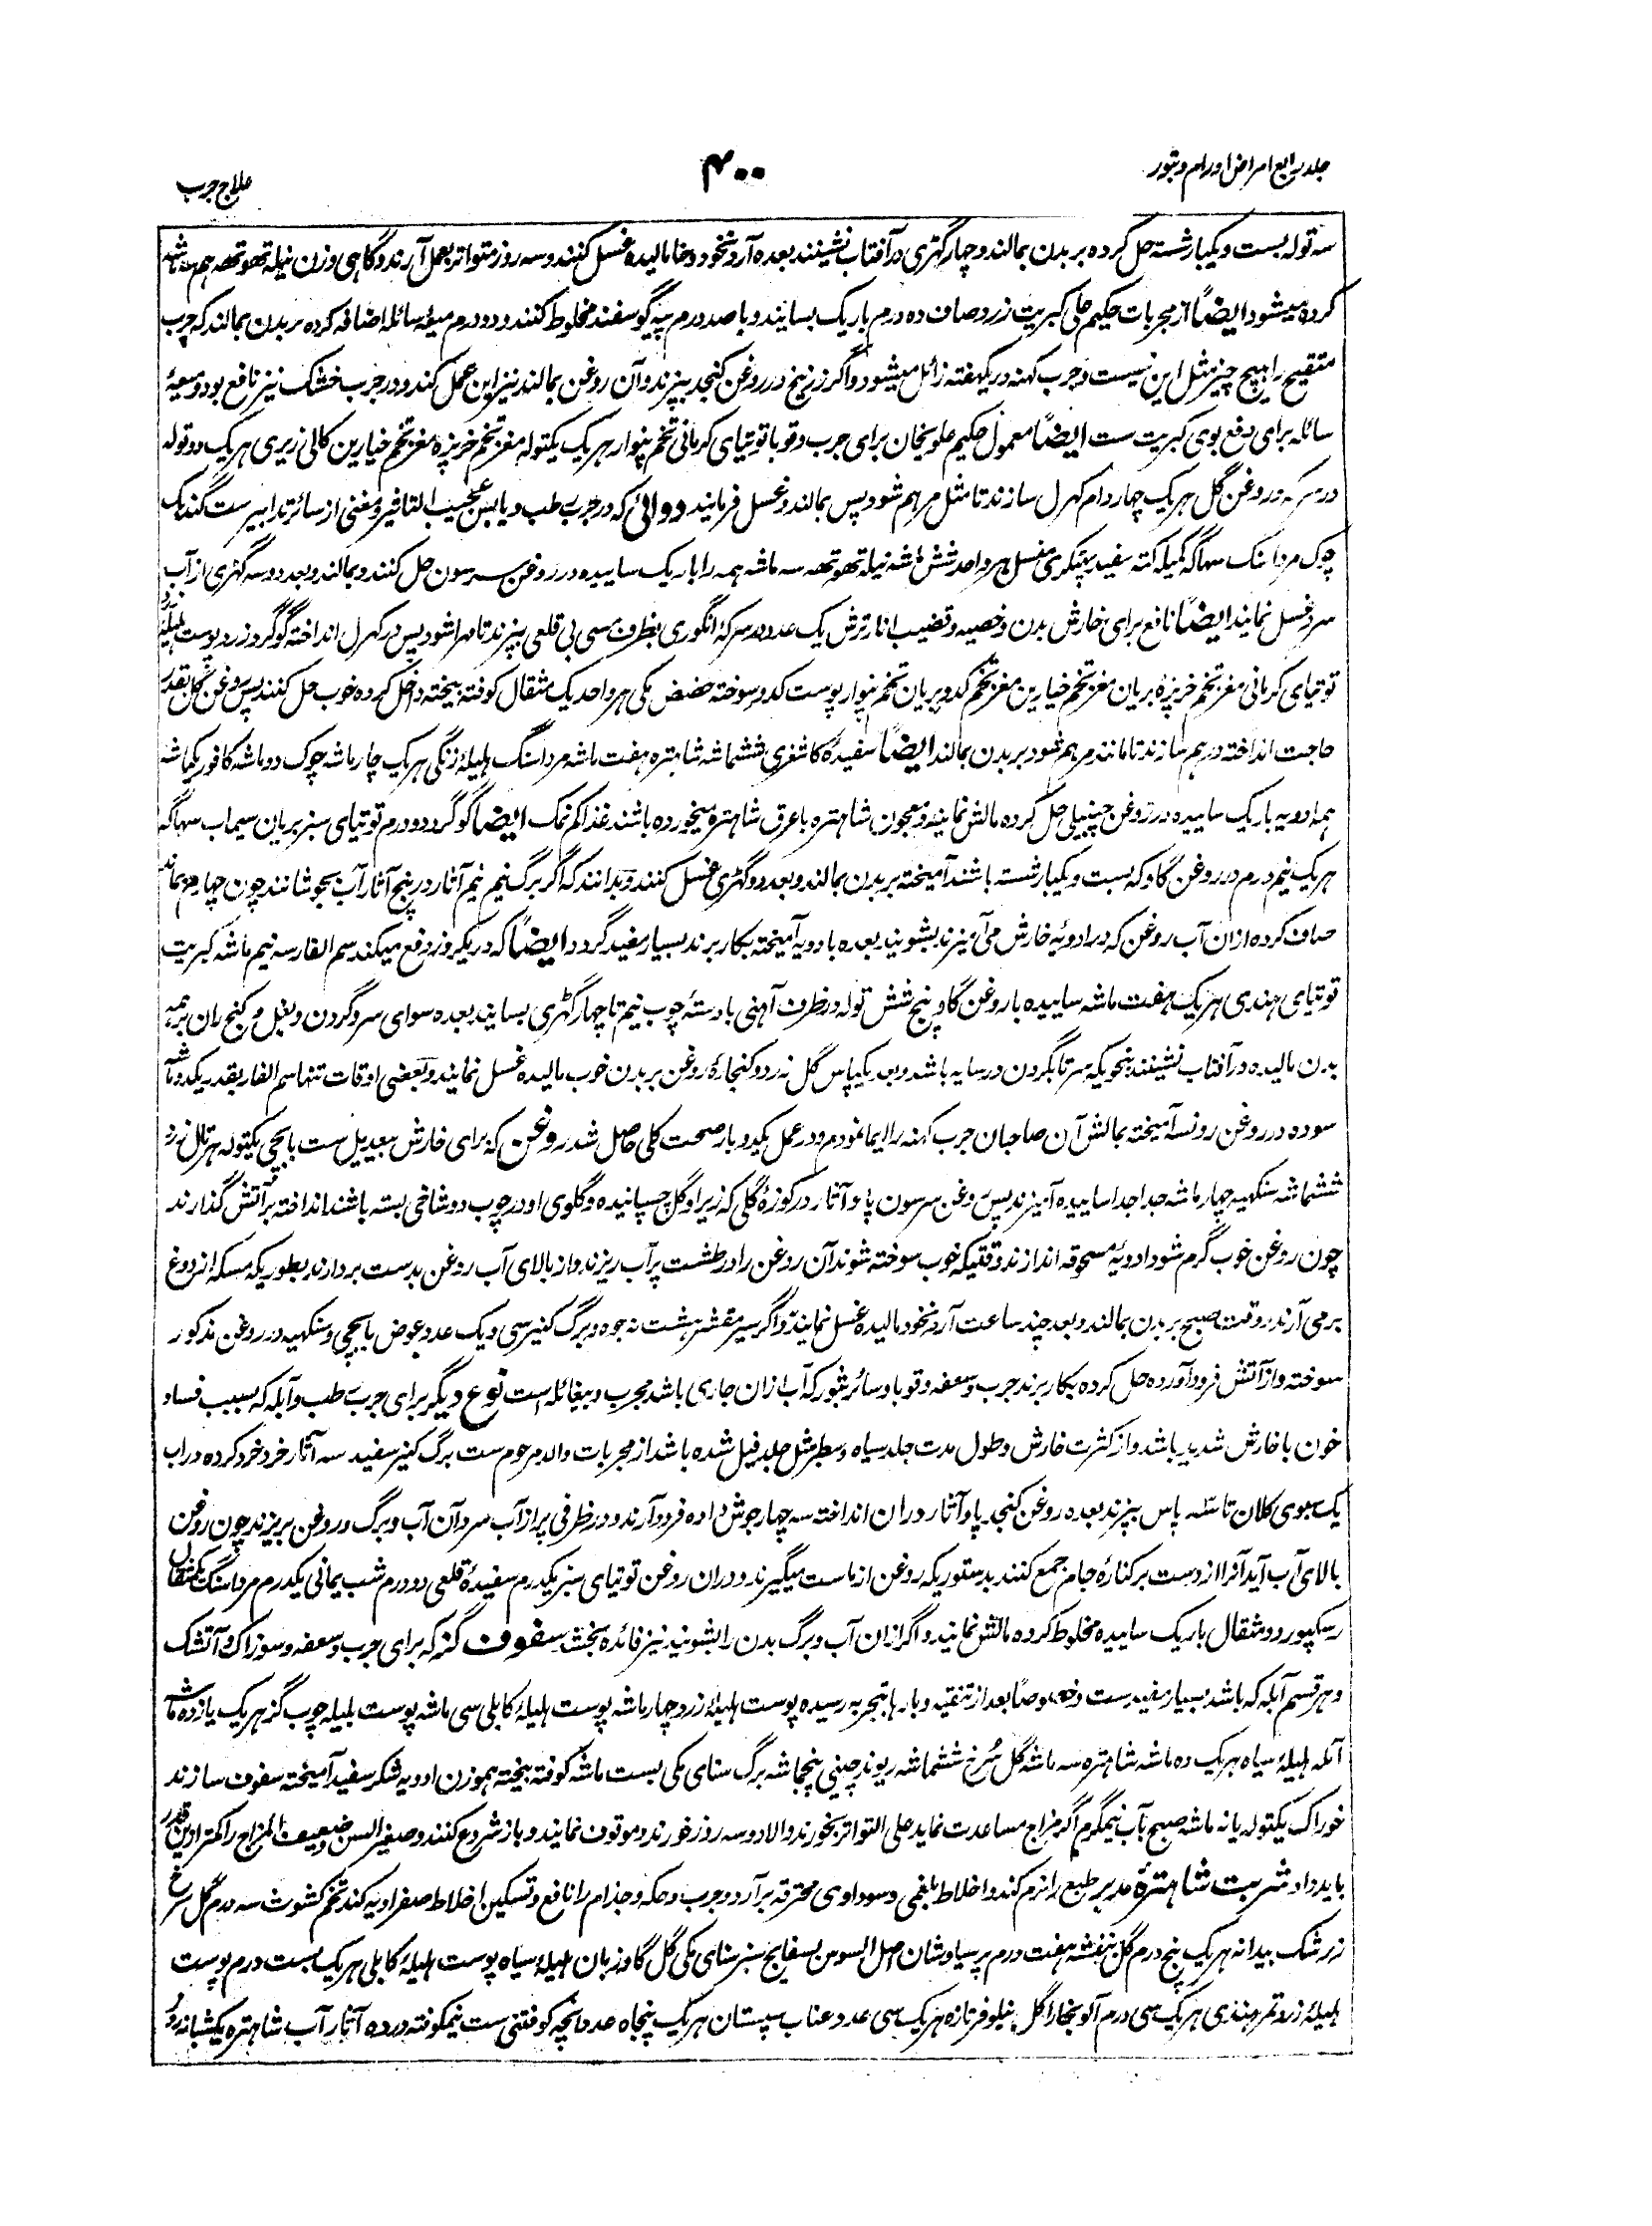 جلد رابع امراض اورام و بثور
۴۰۰
علاج جرب
سه توله بست و یکبار شسته حل کرده بر بدن بمالند و چهار گهڑی در آفتاب نشینند بعده آرد نخود و حنا مالیده غسل کنند و سه روز متواتر بعمل آرند و گاهی وزن نیله تهوتهه هم سه ماشه
کرده میشود ایضاً از مجربات حکیم علی کبریت زرد صاف ده درم باریک بسایند و با صد درم پیه گوسفند مخلوط کنند و دو درم میعه سائله اضافه کرده بر بدن بمالند که جرب
متقیح را هیچ چیز مثل این نیست و جرب کهنه در یکهفته زائل میشود و اگر زرنیخ در روغن کنجد بپزند و آن روغن بمالند نیز این عمل کند و در جرب خشک نیز نافع بود و میعهٔ
سائله برای دفع بوی کبریت ست ایضاً معمول حکیم علویخان برای جرب و قوبا توتیای کرمانی تخم پنوار هر یک یکتوله مغز تخم خرپزه مغز تخم خیارین کالی زیری هر یک دو توله
در سرکه و روغن گل هر یک چهار دام کهرل سازند تا مثل مرهم شود پس بمالند و غسل فرمایند دوائی که در جرب رطب و یابس عجیب التاثیر و مغنی از سائر تدابیر ست گندک
چوک مرداسنگ سهاگه کمیله کته سفید پهٹکری مغسل هر واحد شش ماشه نیله تهوتهه سه ماشه همه را باریک ساییده در روغن سرسون حل کنند و بمالند و بعد دو سه گهڑی از آب
سرد غسل نمایند ایضاً نافع برای خارش بدن و خصیه و قضیب انار ترش یک عدد در سرکهٔ انگوری بظرف مسی بی قلعی بپزند تا مهرا شود پس در کهرل انداخته گوگرد زرد پوست هلیلهٔ زرد
توتیای کرمانی مغز تخم خرپزهٔ بریان مغز تخم خیارین مغز تخم کدو بریان تخم پنوار پوست کدو سوخته حضض مکی هر واحد یک مثقال کوفته بیخته داخل کرده خوب حل کنند پس روغن گل بقدر
حاجت انداخته در هم سازند تا مانند مرهم شود بر بدن بمالند ایضاً سفیدهٔ کاشغری ششماشه شاهتره هفت ماشه مرداسنگ هلیلهٔ زنگی هر یک چار ماشه چوک دو ماشه کافور یکماشه
همه ادویه باریک ساییده در روغن چنبیلی حل کرده مالش نمایند و معجون شاهتره با عرق شاهتره میخورده باشند غذا کم نمک ایضاً گوگرد دو درم توتیای سبز بریان سیماب سهاگه
هر یک نیم درم در روغن گاو که بست و یکبار شسته باشند آمیخته بر بدن بمالند و بعد دو گهڑی غسل کنند و بدانند که اگر برگ نیم نیم آثار در پنج آثار آب بجوشانند چون چهارم بماند
صاف کرده ازان آب روغن که در ادویهٔ خارش می آمیزند بشویند بعده با دویه آمیخته بکار برند بسیار مفید گردد ایضاً که در یکروز دفع میکند سم الفار سه نیم ماشه کبریت
توتیای هندی هر یک هفت ماشه ساییده با روغن گاو پنج شش توله در ظرف آهنی با دستهٔ چوب نیم تا چهار گهڑی بسایند بعده سوای سر و گردن و بغل و کنج ران بر همه
بدن مالیده در آفتاب نشینند بنحویکه سر تا بگردن در سایه باشد و بعد یکپاس گل زرد و کنجارهٔ روغن بر بدن خوب مالیده غسل نمایند و بعضی اوقات تنها سم الفار بقدر یکدو ماشه
سوده در روغن رونسا آمیخته بمالش آن صاحبان جرب کهنه را ایما نمودم و در عمل یکدو بار صحت کلی حاصل شد روغن که برای خارش بیعدیل ست بابچی یکتوله هرتال زرد
ششماشه سنکهیه چهار ماشه جدا جدا ساییده آمیزند پس روغن سرسون پاو آثار در کوزهٔ گلی که زیر او گل چسپانیده و گلوی او در چوب دو شاخی بسته باشند انداخته بر آتش گذارند
چون روغن خوب گرم شود ادویهٔ مسحوقه اندازند وقتیکه خوب سوخته شوند آن روغن را در طشت پر آب ریزند و از بالای آب روغن بدست بردارند بطوریکه مسکه از دوغ
برمی آرند وقت صبح بر بدن بمالند و بعد چند ساعت آرد نخود مالیده غسل نمایند و اگر سیر مقشر هشت نه جوه و برگ کنیر سی و یک عدد عوض بابچی و سنکهیه در روغن مذکور
سوخته و از آتش فرود آورده حل کرده بکار برند جرب و سعفه و قوبا و سائر بثور که آب ازان جاری باشد مجرب و بیغائله است نوع دیگر برای جرب رطب و آبله که بسبب فساد
خون با خارش شدید باشد و از کثرت خارش و طول مدت جلد سیاه و سطبر مثل جلد فیل شده باشد از مجربات والد مرحوم ست برگ کنیر سفید سه آثار خرد خرد کرده در آب
یک سبوی کلان تا سه پاس بپزند بعده روغن کنجد پاو آثار دران انداخته سه چهار جوش داده فرود آرند و در ظرفی پر از آب سرد آن آب و برگ و روغن بریزند چون روغن
بالای آب آید آنرا از دست بر کنارهٔ جام جمع کنند بدستوریکه روغن از ماست میگیرند و دران روغن توتیای سبز یکدرم سفیدهٔ قلعی دو درم شب یمانی یکدرم مرداسنگ یکمثقال
رسکپور دو مثقال باریک ساییده مخلوط کرده مالش نمایند و اگر ازان آب و برگ بدن را بشویند نیز فائده بخشد سفوف گز که برای جرب و سعفه و سوزاک و آتشک
و هر قسم آبله که باشد بسیار مفید ست خصوصاً بعد از تنقیه و بارها بتجربه رسیده پوست هلیلهٔ زرد چهار ماشه پوست هلیلهٔ کابلی سی ماشه پوست بلیله چوب گز هر یک یازده ماشه
آمله هلیلهٔ سیاه هر یک ده ماشه شاهتره سه ماشه گل سرخ ششماشه ریوند چینی پنجماشه برگ سنای مکی بست ماشه کوفته بیخته هموزن ادویه شکر سفید آمیخته سفوف سازند
خوراک یکتوله یا نه ماشه صبح بآب نیمگرم اگر مزاج مساعدت نماید علی التواتر بخورند والا دو سه روز خورند و موقوف نمایند و باز شروع کنند و صغیر السن و ضعیف المزاج را کمتر ازین قدر
باید داد شربت شاهترهٔ مدبر طبع را نرم کند و اخلاط بلغمی و سوداوی محترقه برآرد و جرب و حکه و جذام را نافع و تسکین اخلاط صفراویه کند تخم کشوث سه درم گل سرخ
زرشک بیدانه هر یک پنج درم گل بنفشه هفت درم پرسیاوشان اصل السوس بسفایج سبز سنای مکی گل گاوزبان هلیلهٔ سیاه پوست هلیلهٔ کابلی هر یک بست درم پوست
هلیلهٔ زرد تمر هندی هر یک سی درم آلو بخارا گل نیلوفر تازه هر یک سی عدد عناب سپستان هر یک پنجاه عدد آنچه کوفتنی ست نیمکوفته در ده آثار آب شاهتره یکشبانه روز